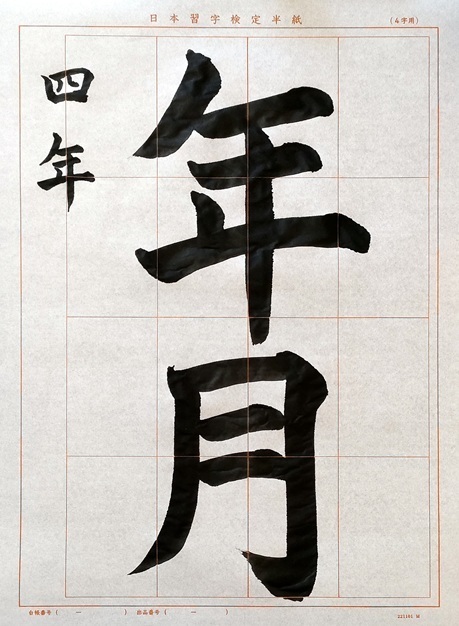 日本習字検定半紙
(4字用)
年月
四年
台帳番号( — ) 出品番号( — )
221101 M